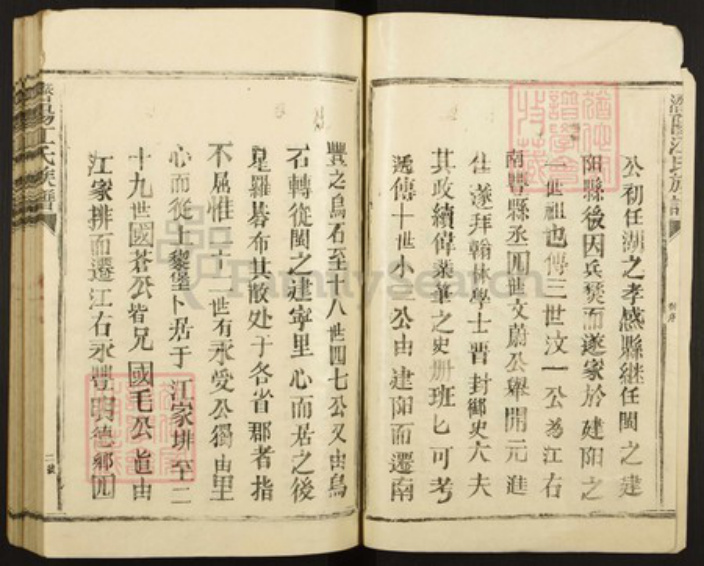 公初任湖之孝感縣継任閩之建
阳縣後因兵焚而遂家於建阳之
一世祖也傳三世汶一公为江右
南豐縣丞四世文蔚公舉開元進
仕遂拜翰林學士晋封御史大夫
其政績偉業筆之史册班匕可考
遞傳十世小一公由建阳而遷南
豐之烏石至十八世四七公又由烏
石轉從閩之建寧里心而居之後
星羅碁布其散处于各省郡者指
不屈惟二十二世有永受公獨由里
心而從上黎堡卜居于江家排至二
十九世國蒼公皆兄國毛公皆由
江家排而遷江右永豐明德鄉四
江氏族譜
三號
FamilySearch